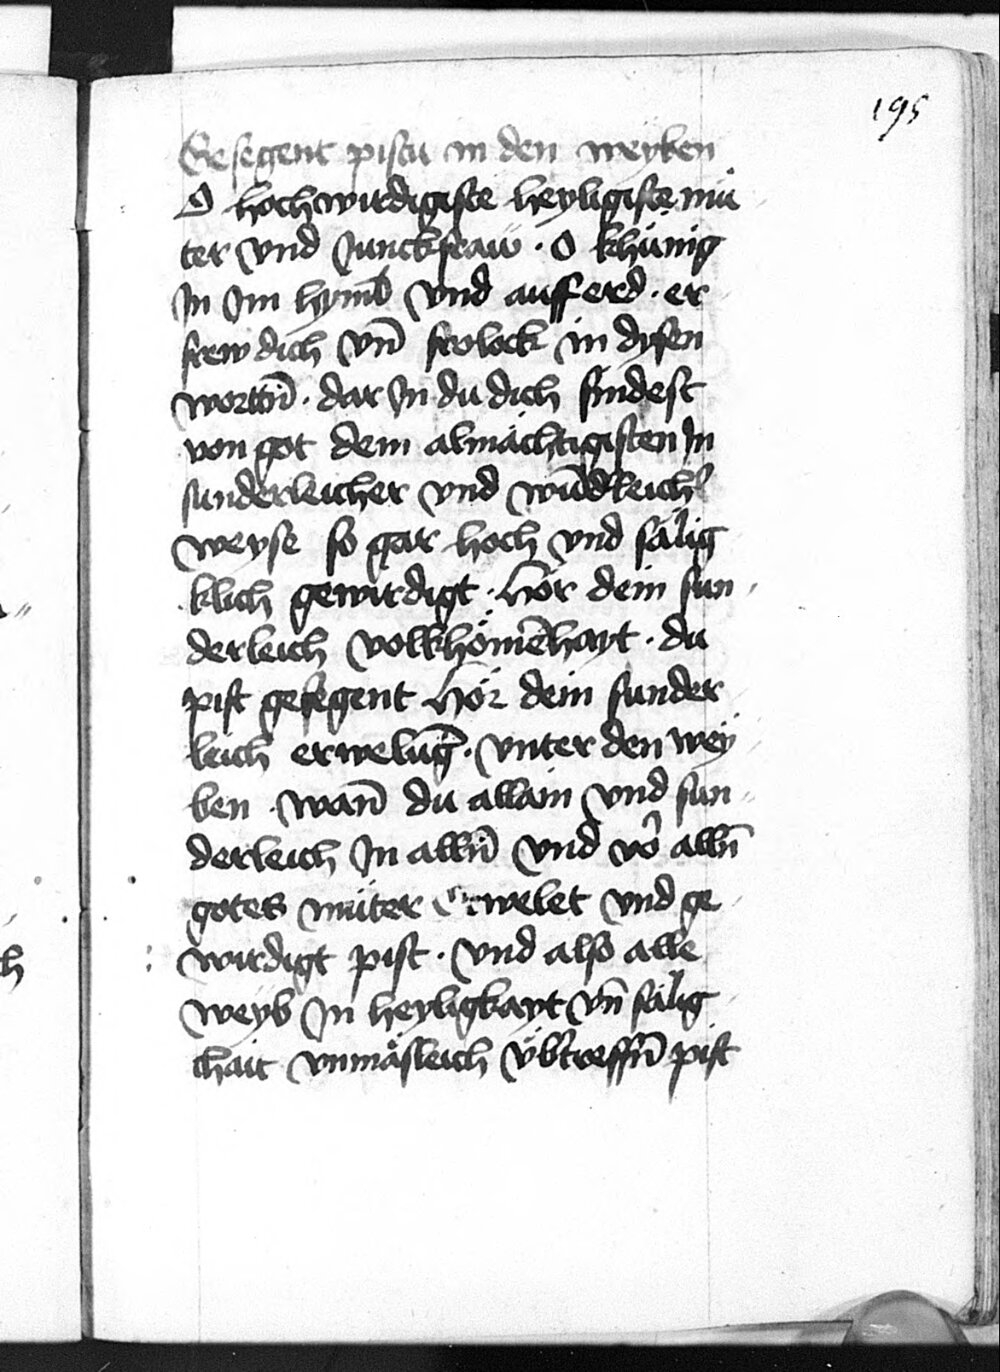 195
Gesegent pistu in den weyben
O hochwirdigiste heyligiste mu̇
ter vnd Junckfraw · O khünig
In Im hyml vnd auff erd · er
frew dich vn̄ frolock in dysen
wortn̄ · dar In du dich findest
von got dem almächtigisten In
sunderleicher vnd wūdleich͛
weyse so gar hoch vnd sälig
klich gewirdigt · hör dein sun
derleich volkhömēhayt · du
pist gesegent hör dein sunder
leich erwelūg · vnter den wey
ben · wan̄ du allain vnd sun
derleich In alln̄ vnd vō alln̄
gotes müter Erwelet vnd ge
wirdigt pist · vnd also alle
weyb In heyligkayt vn̄ sälig
chait vnmäsleich vb͛treffn̄ pist
h